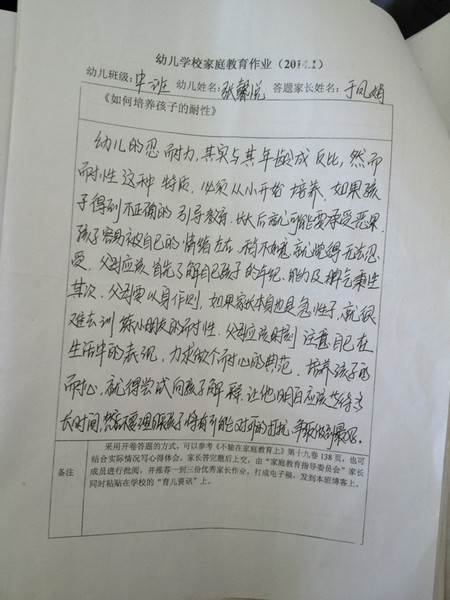 幼儿学校家庭教育作业（2014.1）
幼儿班级：中一班 幼儿姓名：张馨悦 答题家长姓名：于凤娟
《如何培养孩子的耐性》
幼儿的忍耐力，其实与其年龄成反比，然而
耐性这种特质，必须从小开始培养，如果孩
子得到不正确的引导教育，长大后就可能要承受恶果，
孩子容易被自己的情绪左右，稍不如意就觉得无法忍
受，父母应该首先了解自己孩子的年纪、能力及脾气秉性
其次，父母要以身作则，如果家长本身也是急性子，就很
难去训练小朋友的耐性，父母应该时刻注意自己在
生活中的表现，力求做个耐心的典范，培养孩子的
耐心，就得尝试向孩子解释，让他明白应该等待多
长时间，然后要理解孩子
备注
采用开卷答题的方式，可以参考《不输在家庭教育上》第十九卷138页，也可
结合实际情况写心得体会。家长答完题后上交，由“家庭教育指导委员会”家长
成员进行批阅，并推荐一到三份优秀家长作业，打成电子稿，发到本班博客上。
同时粘贴在学校的“育儿资讯”上。